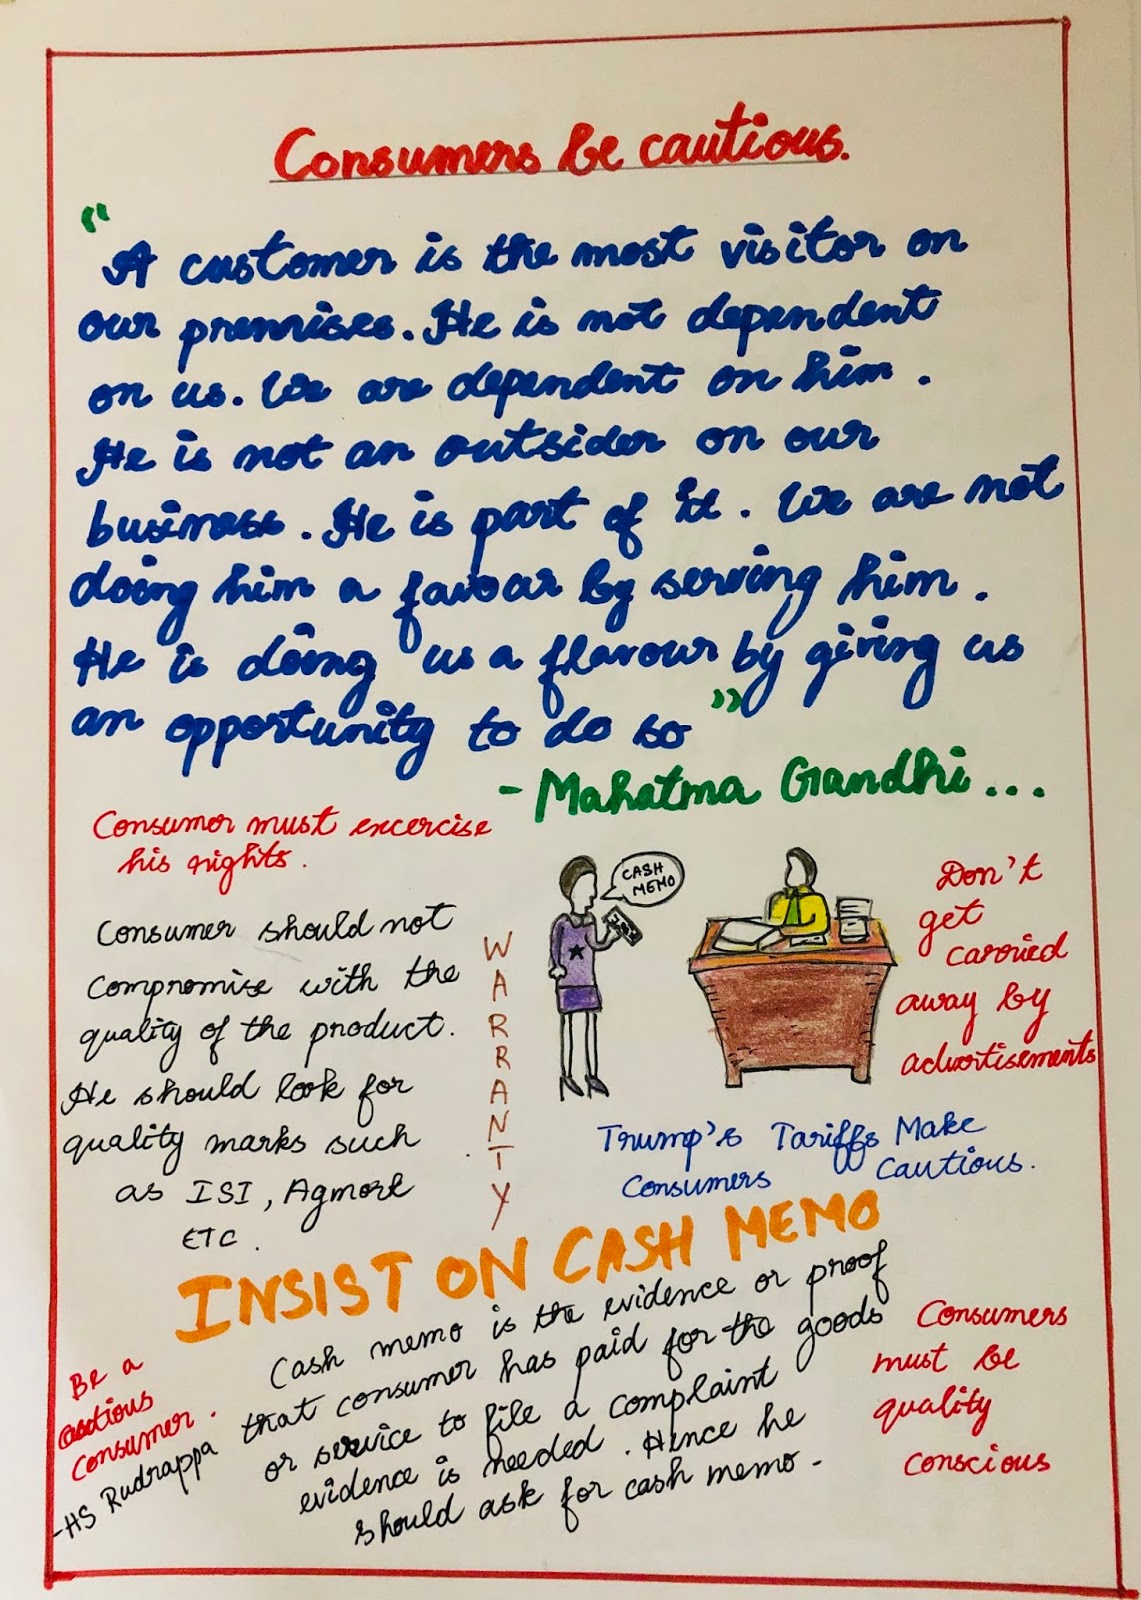 Consumers be cautious.
"A customer is the most visitor on
our premises. He is not dependent
on us. We are dependent on him.
He is not an outsider on our
business. He is part of it. We are not
doing him a favour by serving him.
He is doing us a flavour by giving us
an opportunity to do so"
- Mahatma Gandhi...
Consumer must excercise
his rights.
Consumer should not
compromise with the
quality of the product.
He should look for
quality marks such
as ISI, Agmork
ETC.
WARRANTY
CASH
MEMO
Don't
get
carried
away by
advertisements
Trump's Tariffs Make
Consumers Cautious.
INSIST ON CASH MEMO
Cash memo is the evidence or proof
that consumer has paid for the goods
or service to file a complaint
evidence is needed. Hence he
should ask for cash memo.
Be a
cautious
consumer.
-HS Rudrappa
Consumers
must be
quality
conscious